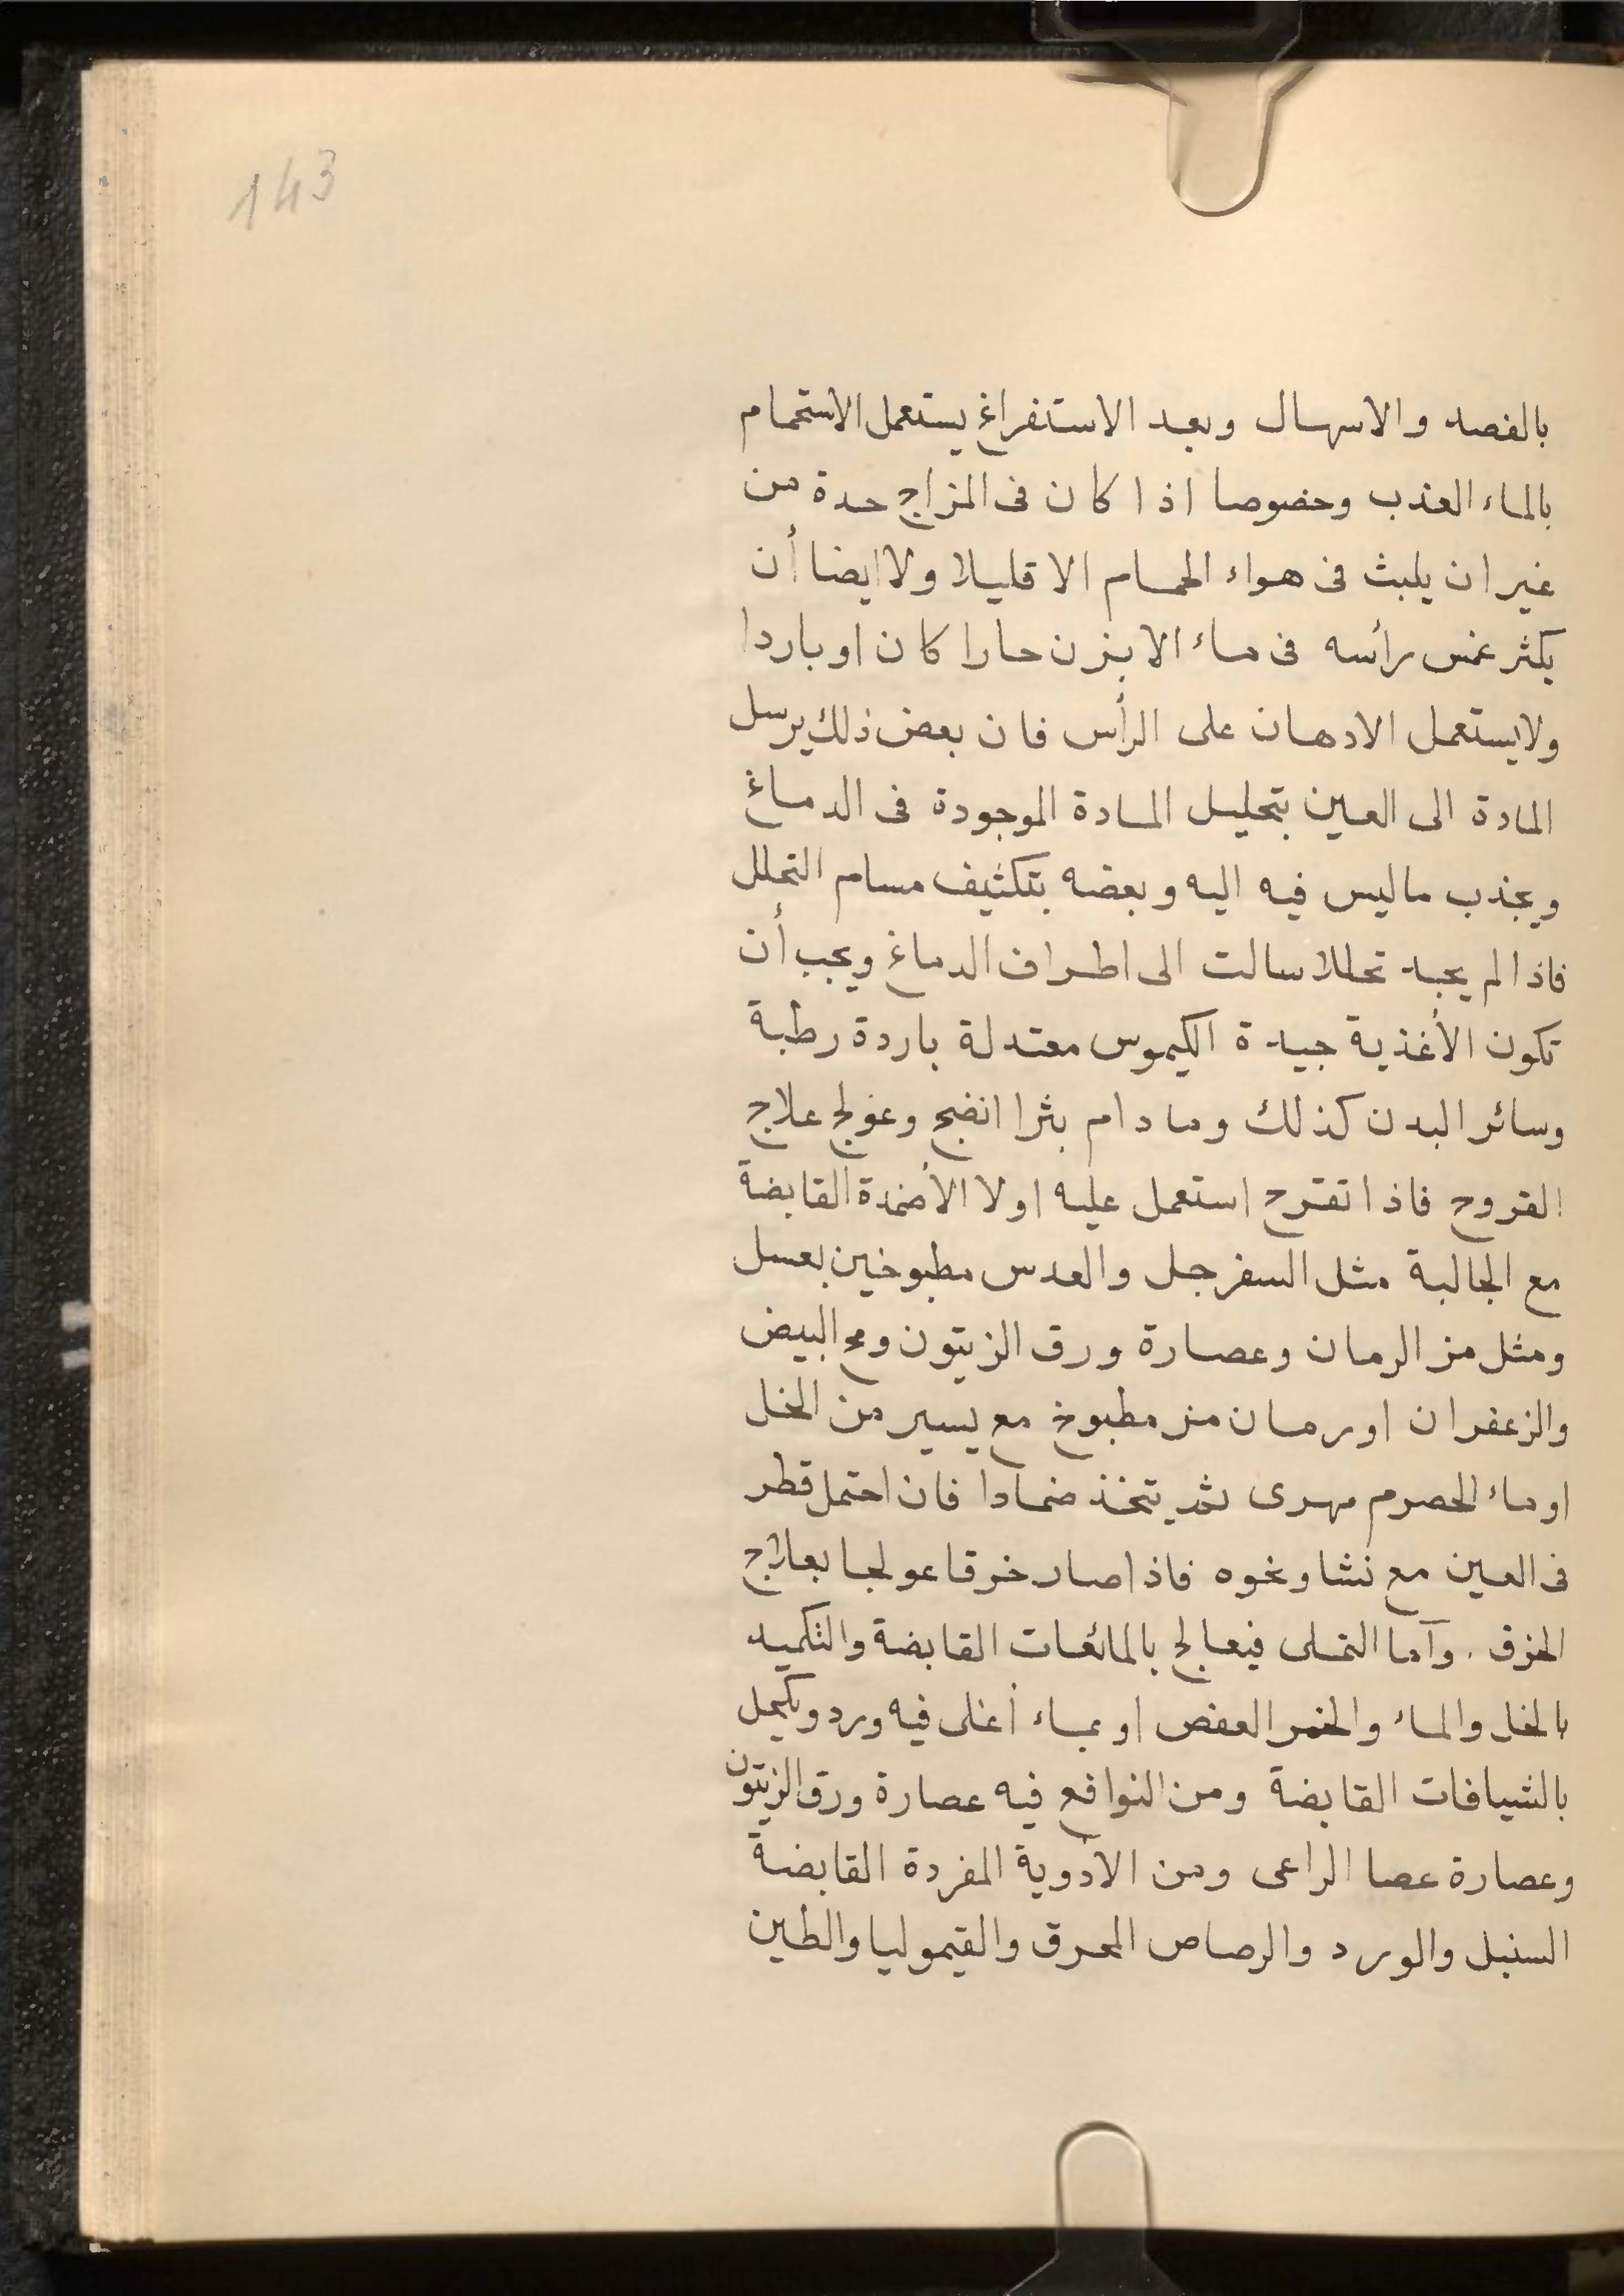 143
بالفصد والاسهال وبعد الاستفراغ يستعمل الاستحمام
بالماء العذب وخصوصا اذا كان فى المزاج حدة من
غير ان يلبث فى هواء الحمام الا قليلا ولا ايضا أن
يكثر غمس رأسه فى ماء الابزن حارا كان او باردا
ولا يستعمل الادهان على الرأس فان بعض ذلك يرسل
المادة الى العين بتحليل المادة الموجودة فى الدماغ
ويجذب ماليس فيه اليه وبعضه بتكثيف مسام التحلل
فاذا لم يجد تحللا سالت الى اطراف الدماغ ويجب أن
تكون الأغذية جيدة الكيموس معتدلة باردة رطبة
وسائر البدن كذلك وما دام بثرا انضج وعولج علاج
القروح فاذا تقرح استعمل عليه اولا الأضمدة القابضة
مع الجالبة مثل السفرجل والعدس مطبوخين بعسل
ومثل مز الرمان وعصارة ورق الزيتون ومح البيض
والزعفران او رمان مز مطبوخ مع يسير من الخل
او ماء الحصرم مهرى ثم يتخذ ضمادا فان احتمل قطر
فى العين مع نشا ونحوه فاذا صار خرقا عولجا بعلاج
الخرق . وآما النملى فيعالج بالمائعات القابضة والتكميد
بالخل والماء والخمر العفص او بماء أغلى فيه ورد ويكحل
بالشيافات القابضة ومن النوافع فيه عصارة ورق الزيتون
وعصارة عصا الراعى ومن الأدوية المفردة القابضة
السنبل والورد والرصاص المحرق والقيموليا والطين